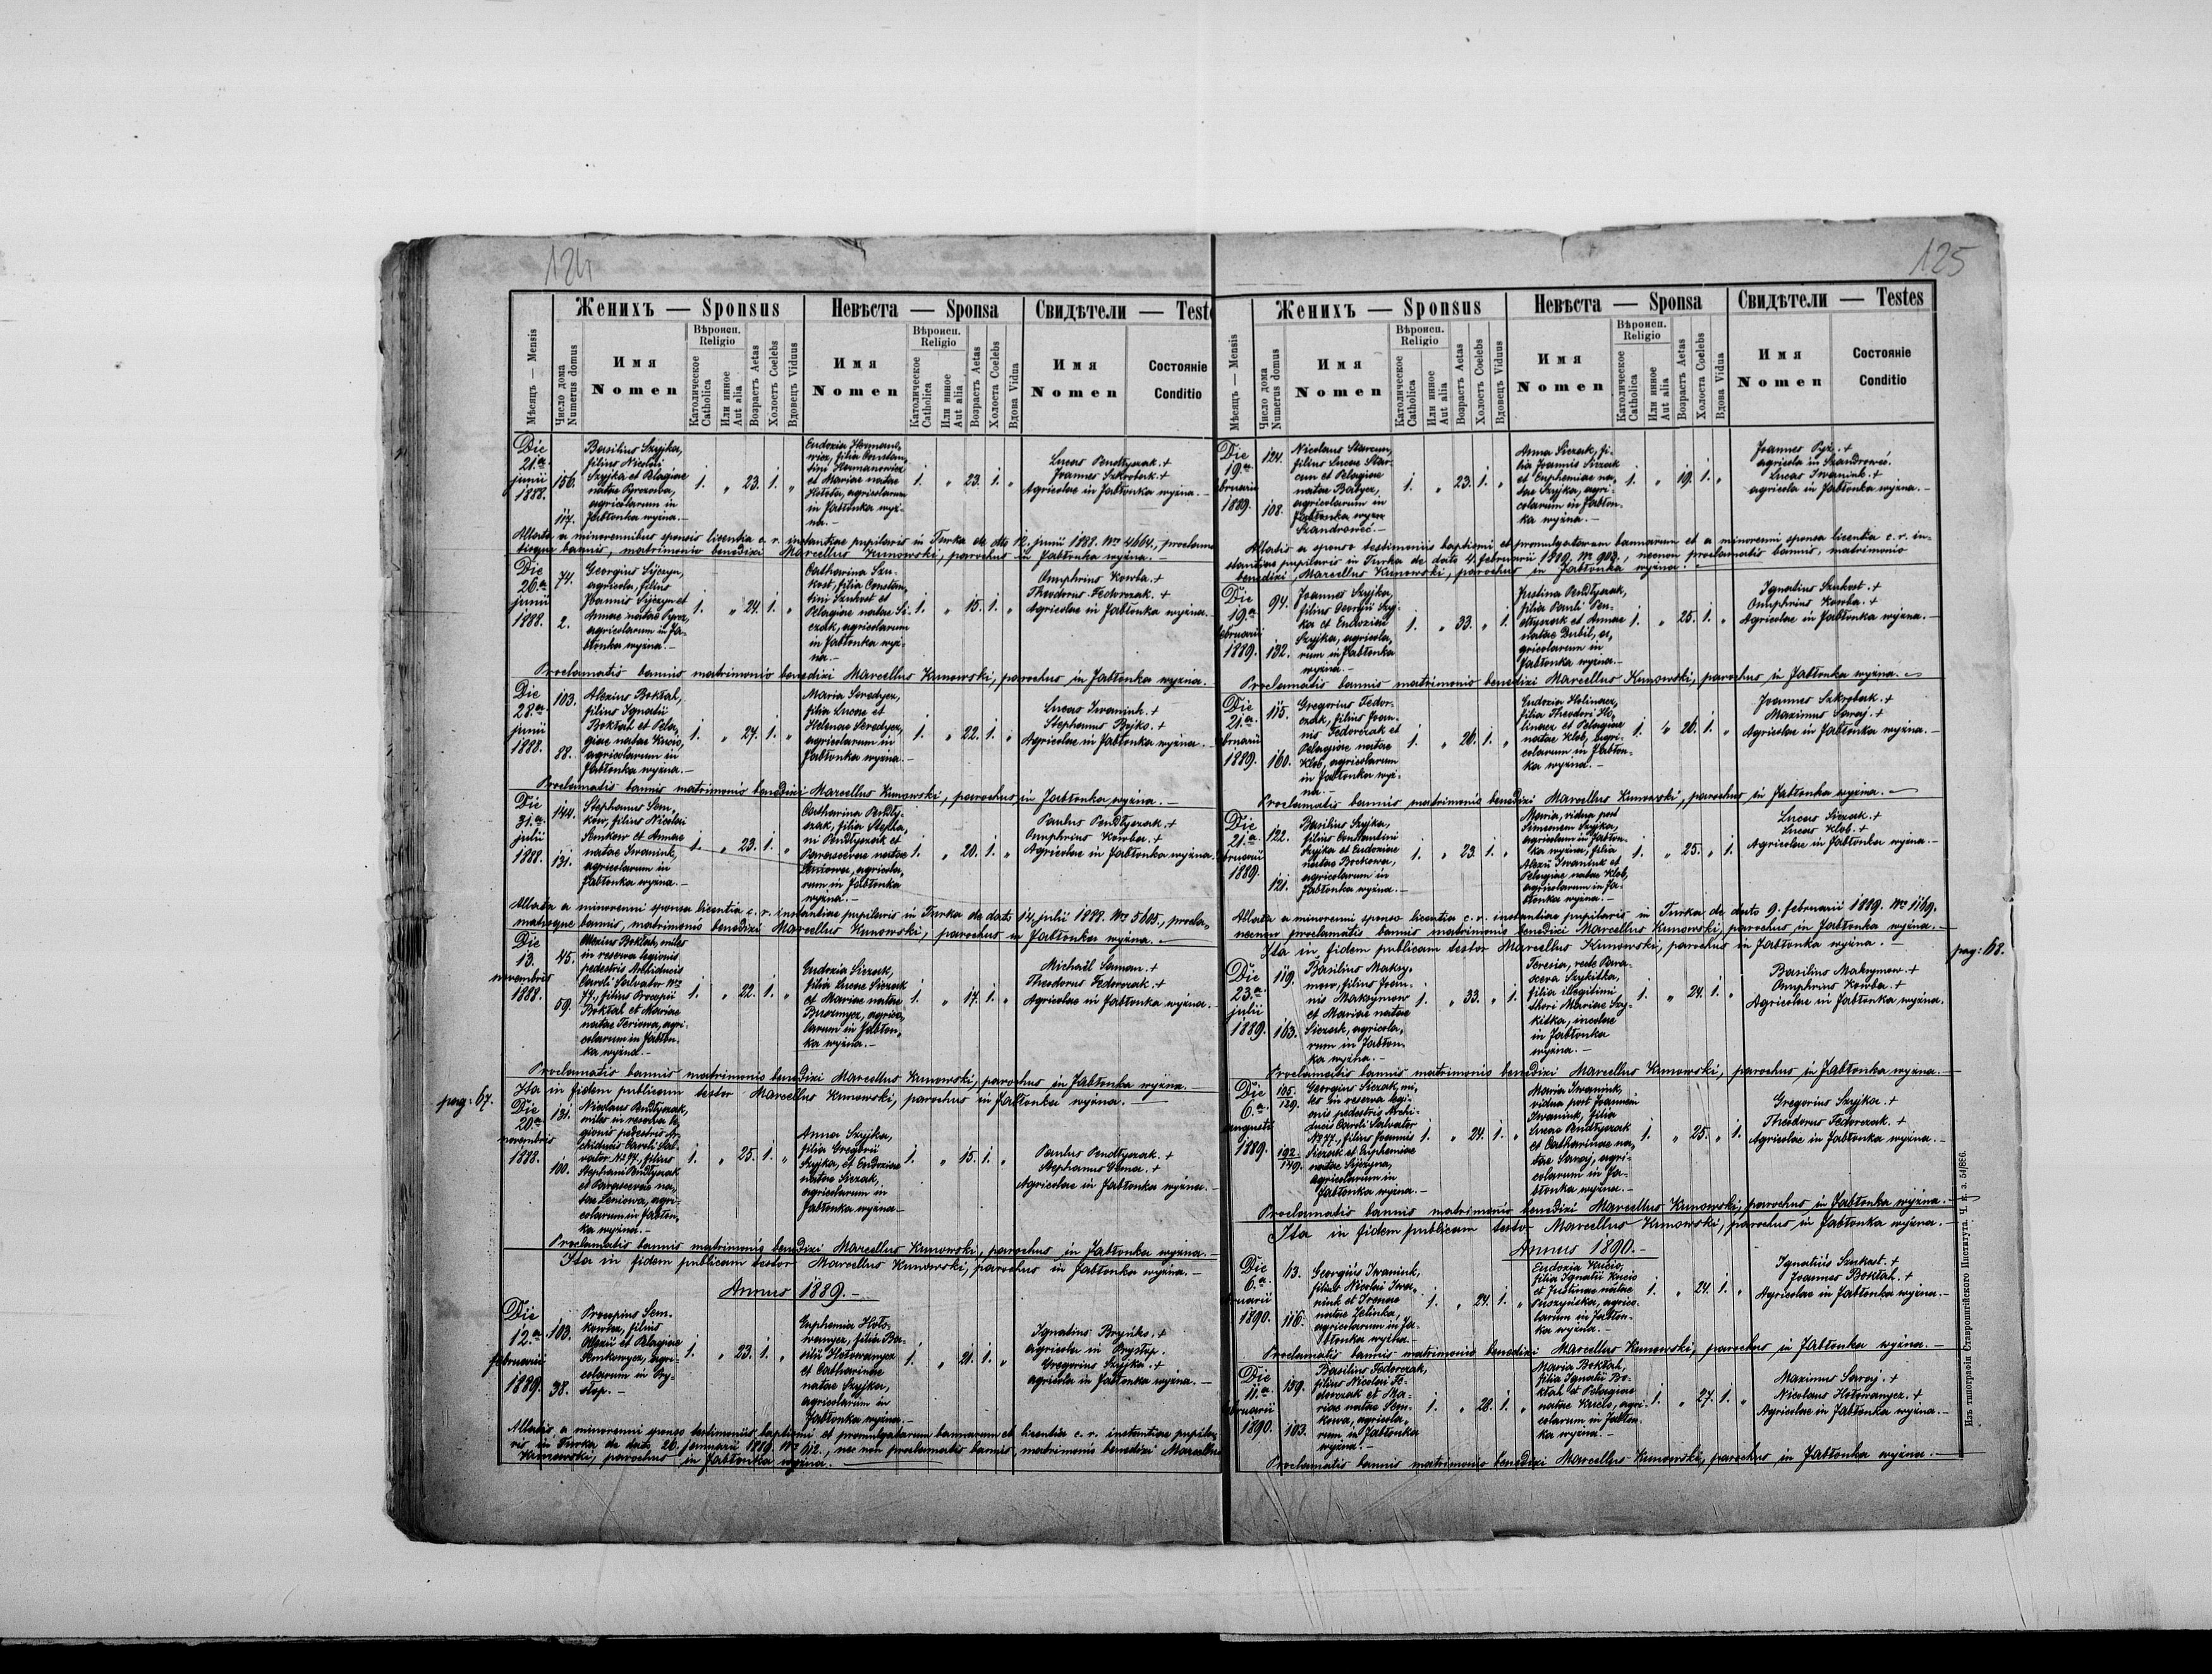 124
Женихъ — Sponsus
Невѣста — Sponsa
Свидѣтели — Test
Мѣсяцъ — Mensis
Число дома
Numerus domus
Имя
Nomen
Вѣроисп.
Religio
Католическое
Catholica
Или инное
Aut alia
Возрастъ Aetas
Холостъ Coelebs
Вдовецъ Viduus
Имя
Nomen
Вѣроисп.
Religio
Католическое
Catholica
Или инное
Aut alia
Возрастъ Aetas
Холоста Coelebs
Вдова Vidua
Имя
Nomen
Состояніе
Conditio
Die
21.a
junii
1888.
156.
117.
Basilius Szyjka,
filius Nicolai
Szyjka et Pelagiae
natae
agricolarum in
Jabłonka wyżna.—
1. „ 23. 1. „
Eudoxia
filia Constan,
tini
et Mariae natae
agricolarum
in Jabłonka wyż
na.—
1. „ 23. 1. „
Lucas Pendłyszak. +
Joannes Szkrobak. +
Agricolae in Jabłonka wyżna.—
Allata a minorennibus sponsis licentia c. r. instantiae pupilaris in Turka de dto 12. junii 1888. No 4664., proclama
tisque bannis, matrimonio benedixi Marcellus Kunowski, parochus in Jabłonka wyżna.—
Die
26.a
junii
1888.
74.
2.
Georgius Sijczyn,
agricola, filius
Joannis Sijczyn et
Annae natae Pyroz,
agricolarum in Ja-
błonka wyżna.—
1. „ 24. 1. „
Catharina Szu-
kost, filia Constan,
tini Szukost et
Pelagiae natae Si-
czak, agricolarum
in Jabłonka wyż-
na.—
1. „ 15. 1. „
Onuphrius Kowba. +
Theodorus Fedorczak. +
Agricolae in Jabłonka wyżna.—
Proclamatis bannis matrimonio benedixi Marcellus Kunowski, parochus in Jabłonka wyżna.
Die
28.a
junii
1888.
103.
88.
Alexius Boktah,
filius Ignatii
Boktah et Pela-
giae natae Kucio,
agricolarum in
Jabłonka wyżna.—
1. „ 27. 1. „
Maria Seredycz,
filia Lucae et
Helenae Seredycz,
agricolarum in
Jabłonka wyżna.—
1. „ 22. 1. „
Lucas Iwaniuk. +
Stephanus Bojko. +
Agricolae in Jabłonka wyżna.—
Proclamatis bannis matrimonio benedixi Marcellus Kunowski, parochus in Jabłonka wyżna.—
Die
31.a
julii
1888.
144.
131.
Stephanus Sem-
kow, filius Nicolai
Semkow et Annae
natae Iwaniuk,
agricolarum in
Jabłonka wyżna.—
1. „ 23. 1. „
Catharina Pendły-
szak, filia Stepha,
ni Pendłyszak et
Parascevae natae
agricola,
rum in Jabłonka
wyżna.—
1. „ 20. 1. „
Paulus Pendłyszak. +
Onuphrius Kowba. +
Agricolae in Jabłonka wyżna.
Allata a minorenni sponsa licentia c. r. instantiae pupilaris in Turka de dato 14. julii 1888. No 5605., procla,
matisque bannis, matrimonio benedixi Marcellus Kunowski, parochus in Jabłonka wyżna.—
Die
13.
novembris
1888.
45.
59.
Alexius Boktah, miles
in reserva legionis
pedestris Archiducis
Caroli Salvator No
77., filius Procopii
Boktah et Mariae
natae agri-
colarum in Jabłon,
ka wyżna.—
1. „ 22. 1. „
Eudoxia Siczak,
filia Lucae Siczak
et Mariae natae
agrico,
larum in Jabłon,
ka wyżna.—
1. „ 17. 1. „
Michaël Saman. +
Theodorus Fedorczak. +
Agricolae in Jabłonka wyżna.—
Proclamatis bannis matrimonio benedixi Marcellus Kunowski, parochus in Jabłonka wyżna.—
pag: 67.
Ita in fidem publicam testor Marcellus Kunowski, parochus in Jabłonka wyżna.—
Die
20.a
novembris
1888.
131.
100.
Nicolaus Pendłyszak,
miles in reserva le
gionis pedestris Ar
chiducis Caroli Sal-
vator No 77., filius
Stephani Pendłyszak
et Parascevae na-
tae Leniowa, agri-
colarum in Jabłon,
ka wyżna.—
1. „ 25. 1. „
Anna Szyjka,
filia Gregorii
Szyjka, et Eudoxiae
natae Siczak,
agricolarum in
Jabłonka wyżna—
1. „ 15. 1. „
Paulus Pendłyszak. +
Stephanus +
Agricolae in Jabłonka wyżna.—
Proclamatis bannis matrimonio benedixi Marcellus Kunowski, parochus in Jabłonka wyżna.—
Ita in fidem publicam testor Marcellus Kunowski, parochus in Jabłonka wyżna.—
Annus 1889.—
Die
12.a
februarii
1889.
103.
38.
Procopius Sem-
kowicz, filius
Alexii et Pelagiae
agri-
colarum in Ry-
stop.—
1. „ 23. 1. „
Euphemia Hoło-
wanycz, filia Ba-
silii Hołowanycz
et Catharinae
natae Szyjka,
agricolarum in
Jabłonka wyżna.—
1. „ 21. 1. „
Ignatius +
agricola in
Gregorius Szyjka. +
agricola in Jabłonka wyżna.—
Allatis a minorenni sponso testimoniis baptismi et promulgatarum bannarum et licentia c. r. instantiae pupila,
ris in Turka de dato 26. januarii 1889. No 612., nec non proclamatis bannis, matrimonio benedixi Marcellus
Kunowski, parochus in Jabłonka wyżna.—
125
Женихъ — Sponsus
Невѣста — Sponsa
Свидѣтели — Testes
Мѣсяцъ — Mensis
Число дома
Numerus domus
Имя
Nomen
Вѣроисп.
Religio
Католическое
Catholica
Или инное
Aut alia
Возрастъ Aetas
Холостъ Coelebs
Вдовецъ Viduus
Имя
Nomen
Вѣроисп.
Religio
Католическое
Catholica
Или инное
Aut alia
Возрастъ Aetas
Холоста Coelebs
Вдова Vidua
Имя
Nomen
Состояніе
Conditio
Die
19.a
bruarii
1889.
124.
108.
Nicolaus Starcun,
filius Lucae Star-
cun et Pelagiae
natae
agricolarum in
Jabłonka wyżn
Szandrowec.—
1. „ 23. 1. „
Anna Siczak, fi-
lia Joannis Siczak
et Euphemiae na-
tae Szyjka, agri-
colarum in Jabłon-
ka wyżna.—
1. „ 19. 1. „
Joannes Pyż. +
agricola in Szandrowec.
Lucas Iwaniuk. +
agricola in Jabłonka wyżna.—
Allatis a sponso testimoniis baptismi et promulgatarum bannarum et a minorenni sponsa licentia c. r. in-
stantiae pupilaris in Turka de dato 4. februarii 1889. No 903., necnon proclamatis bannis, matrimonio
benedixi, Marcellus Kunowski, parochus in Jabłonka wyżna.—
Die
19.a
februarii
1889.
94.
132.
Joannes Szyjka,
filius Georgii Szyj-
ka et Eudoxiae
Szyjka, agricola,
rum in Jabłonka
wyżna.—
1. „ 33. „ 1.
Justina Pendłyszak,
filia Pauli Pen-
dłyszak et Annae
natae Dubil, a,
gricolarum in
Jabłonka wyżna.—
1. „ 25. 1. „
Ignatius Szukost. +
Onuphrius Kowba. +
Agricolae in Jabłonka wyżna.—
Proclamatis bannis matrimonio benedixi Marcellus Kunowski, parochus in Jabłonka wyżna.—
Die
21.a
bruarii
1889.
115.
160.
Gregorius Fedor-
czak, filius Joan-
nis Fedorczak et
Pelagiae natae
Klob, agricolarum
in Jabłonka wyż-
na.—
1. „ 26. 1. „
Eudoxia Holinacz,
filia Theodori Ho-
linacz et Pelagiae
natae Klob, agri-
colarum in Jabłon-
ka wyżna.—
1. „ 26. 1. „
Joannes Szkrobak. +
Maximus Saraj. +
Agricolae in Jabłonka wyżna.—
Proclamatis bannis matrimonio benedixi Marcellus Kunowski, parochus in Jabłonka wyżna.—
Die
21.a
bruarii
1889.
122.
121.
Basilius Szyjka,
filius Constantini
Szyjka et Eudoxiae
natae
agricolarum in
Jabłonka wyżna.—
1. „ 23. 1. „
Maria, vidua post
Simeonem Szyjka,
agricolam in Jabłon-
ka wyżna, filia
Alexii Iwaniuk et
Pelagiae natae Klob,
agricolarum in Ja-
błonka wyżna.—
1. „ 25. „ 1.
Lucas Siczak. +
Lucas Klob. +
Agricolae in Jabłonka wyżna.—
Allata a minorenni sponso licentia c. r. instantiae pupilaris in Turka de dato 9. februarii 1889. No 1169.
necnon proclamatis bannis matrimonio benedixi Marcellus Kunowski, parochus in Jabłonka wyżna.—
Ita in fidem publicam testor Marcellus Kunowski, parochus in Jabłonka wyżna.—
pag: 68.
Die
23.a
julii
1889.
119.
163.
Basilius Maksy-
mow, filius Joan-
nis Maksymow
et Mariae natae
Siczak, agricola,
rum in Jabłon-
ka wyżna.—
1. „ 33. „ 1.
Teresia, recte Para-
sceva Szykitka,
filia illegitimi
thori Mariae Szy-
kitka, incolae
in Jabłonka
wyżna.—
1. „ 24. 1. „
Basilius Maksymow. +
Onuphrius Kowba. +
Agricolae in Jabłonka wyżna.
Proclamatis bannis matrimonio benedixi Marcellus Kunowski, parochus in Jabłonka wyżna.—
Die
6.a
augusti
1889.
105.
129.
192
149.
Georgius Siczak, mi-
les in reserva legi-
onis pedestris Archi-
ducis Caroli Salvator
No 77., filius Joannis
Siczak et Euphemiae
natae Sijczyna,
agricolarum in
Jabłonka wyżna.—
1. „ 24. 1. „
Maria Iwaniuk,
vidua post Joannem
Iwaniuk, filia
Lucae Pendłyszak
et Catharinae na,
tae Saraj, agri-
colarum in Ja-
błonka wyżna.—
1. „ 25. „ 1.
Gregorius Szyjka. +
Theodorus Fedorczak. +
Agricolae in Jabłonka wyżna.—
Proclamatis bannis matrimonio benedixi Marcellus Kunowski, parochus in Jabłonka wyżna.—
Ita in fidem publicam testor Marcellus Kunowski, parochus in Jabłonka wyżna.—
Annus 1890.—
Die
6.a
bruarii
1890.
63.
116.
Georgius Iwaniuk,
filius Nicolai Iwa-
niuk et Irenae
natae Jelinka,
agricolarum in Ja-
błonka wyżna—
1. „ 24. 1. „
Eudoxia Kucio,
filia Ignatii Kucio
et Justinae natae
Puszyńska, agrico-
larum in Jabłon-
ka wyżna.—
1. „ 24. 1. „
Ignatius Szukost. +
Joannes Boktah. +
Agricolae in Jabłonka wyżna.—
Proclamatis bannis matrimonio benedixi Marcellus Kunowski, parochus in Jabłonka wyżna.—
Die
11.a
bruarii
1890.
159.
103.
Basilius Fedorczak,
filius Nicolai Fe-
dorczak et Ma-
riae natae Sem-
kowa, agricola,
rum in Jabłonka
wyżna.—
1. „ 28. 1. „
Maria Boktah,
filia Ignatii Bo-
ktah et Pelagiae
natae Kucio, agri-
colarum in Jabłon-
ka wyżna.—
1. „ 27. 1. „
Maximus Saraj. +
Nicolaus Hołowanycz. +
Agricolae in Jabłonka wyżna.—
Proclamatis bannis matrimonio benedixi Marcellus Kunowski, parochus in Jabłonka wyżna.—
Изъ типографіи Ставропигійского Института. Ч. д. з. 54/886.